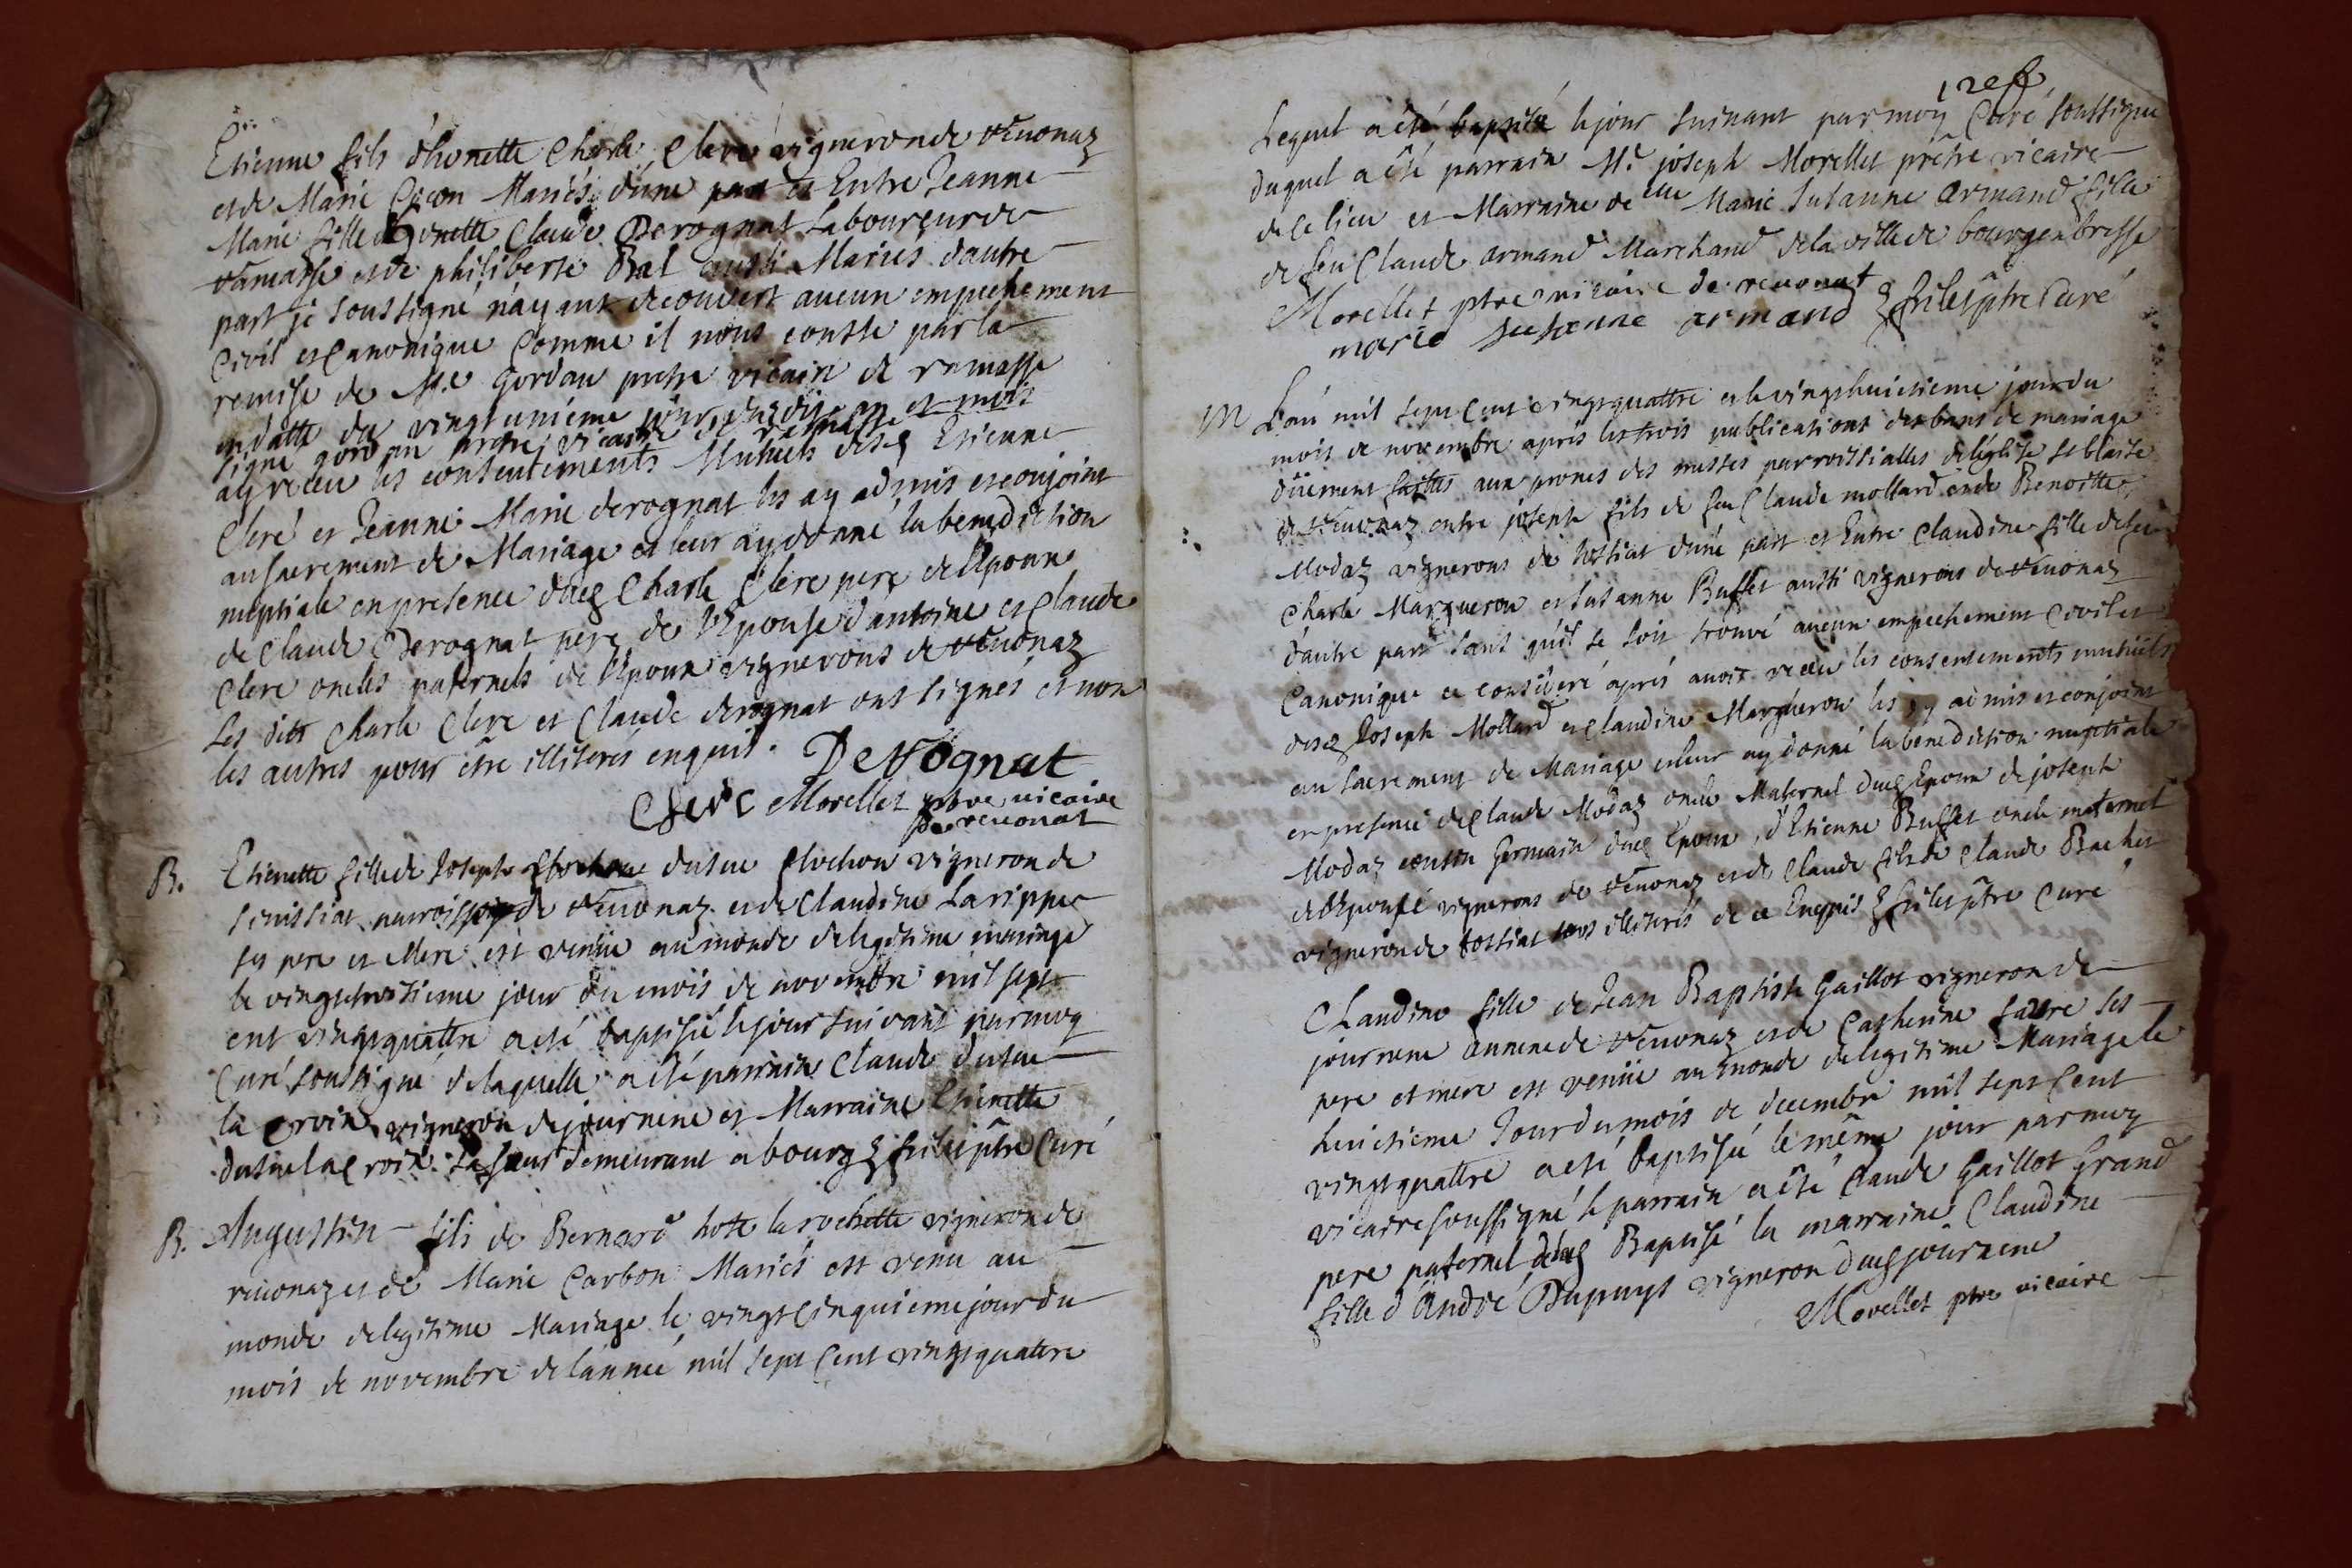 Etienne fils d'honette Charle Clerc vigneron de rëuonaz
et de Marie Mariés d'une part et Entre Jeanne
Marie fille d'honette Claude Derognat Laboureur de
ramasse et de philiberte Bal aussi Mariés d'autre
part je soussigné n'ayant decouvert aucun empechement
Civil et Canonique Comme il nous conste par la
remise de Mre Gordan pretre vicaire de ramasse
en datte du vingtunième jour et mois
signé gordan pretre vicaire de ramasse
ay receu les consentements Mutuels desd Etienne
Clerc et Jeanne Marie derognat les ay admis et conjoint
au sacrement de Mariage et leur ay donné la benediction
nuptiale en presence dud Charle Clerc pere de l'Epoux
de Claude Derognat pere de l'Epouse d'antoine et Claude
Clerc oncles paternels de l'Epoux vignerons de rëuonaz
les dits Charle Clerc et Claude derognat ont signés et non
les autres pour être illiterés enquis. Derognat
Clerc Morellet ptre vicaire
de reuonat
B. Etienette fille de Joseph dutue Clochon vigneron de
senissiat parroisse de rëuonaz et de Claudine Larippe
ses pere et Mere est venüe au monde de legitime mariage
le vingttroisieme jour du mois de novembre mil sept
cent vingtquattre a eté baptisée le jour suivant par moy
Curé soussigné de laquelle a été parrain Claude dutue
la Croix vigneron de journene et Marraine Etienette
dutue la Croix sa sœur demeurant a bourg ptre Curé
B. Augustin fils de Bernard hote larochette vigneron de
reuonaz et de Marie Carbon Mariés est venu au
monde de legitime Mariage le vingt cinquieme jour du
mois de novembre de l'année mil sept Cent vingtquattre
Lequel a été baptisé le jour suivant par moy Curé soussigné
duquel a été parrain Mr joseph Morellet prêtre vicaire
de ce lieu et Marraine delle Marie Susanne armand fille
de feu Claude armand Marchand de la ville de bourgenbresse
Morellet ptre vicaire de reuonat
marie susanne armand ptre Curé
M L'an mil sept Cent vingtquattre et le vingthuictieme jour du
mois de novembre après les trois publications des bans de mariage
düement faittes aux prones des messes parroissialles de l'églife st blaise
de rëuonaz entre joseph fils de feu Claude mollard et de Benoitte
Modaz vignerons de tossiat d'une part et Entre Claudine fille de feu
Charle Margueron et Susanne Buffet aussi vignerons de rëuonaz
d'autre part sans qu'il se soit trouvé aucun empechement Civil et
Canonique ce consideré après avoir receu les consentements mutuels
desd Joseph Mollard et Claudine Margueron les ay admis et conjoint
au sacrement de Mariage et leur ay donné la benediction nuptiale
en presence de Claude Modaz oncle Maternel dud Epoux de joseph
Modaz cousin Germain dud Epoux, d'Etienne Buffet oncle maternel
de l'Epouse vignerons de rëuonaz et de Claude fils de Claude Bachet
vigneron de tossiat tous illiterés de ce Enquis ptre Curé
Claudine fille de Jean Baptiste Gaillot vigneron de
journene annexe de rëuonaz et de Catherine favre ses
pere et mere est venüe au monde de legitime Mariage le
huictieme Jour du mois de decembre mil sept Cent
vingtquattre a eté baptisée le même jour par moy
vicaire soussigné le parrain a été Claude Gaillot Grand
pere paternel dud Baptisé la marraine Claudine
fille d'André Dupuys vigneron dud journene
Morellet ptre vicaire